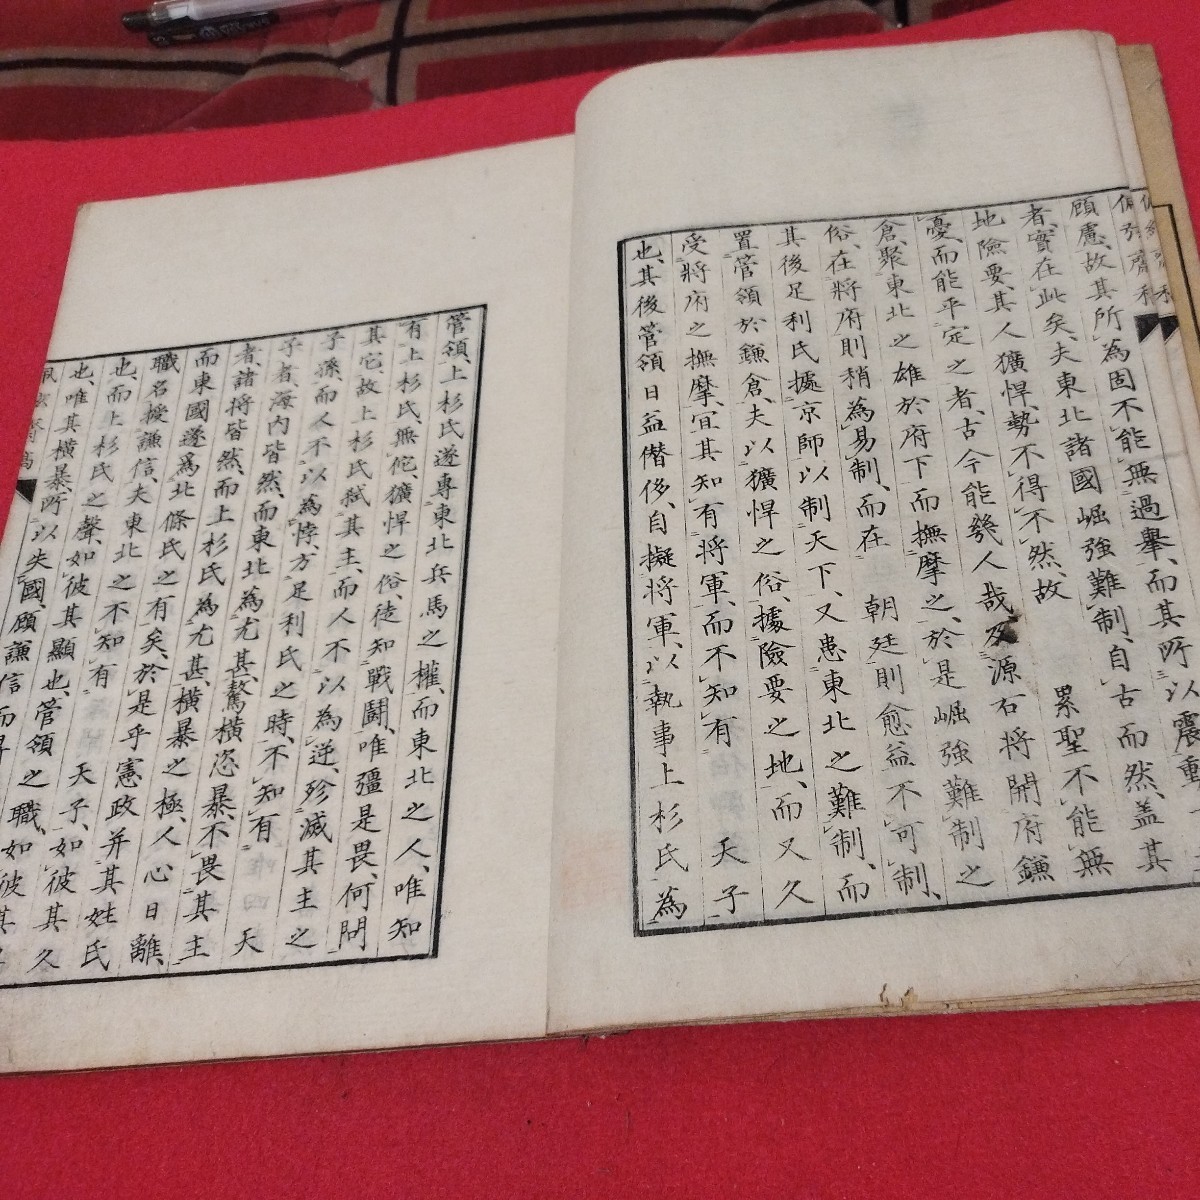 顧慮、故其所為固不能無過舉、而其所以震動
者、實在此矣、夫東北諸國崛強難制、自古而然、蓋其
地險要、其人獷悍、勢不得不然、故 累聖不能無
憂、而能平定之者、古今能幾人哉、及源右將開府鎌
倉、聚東北之雄於府下而撫摩之、於是崛強難制之
俗、在將府則稍為易制、而在 朝廷則愈益不可制、
其後足利氏據京師以制天下、又患東北之難制、而
置管領於鎌倉、夫以獷悍之俗、據險要之地、而又久
受將府之撫摩、宜其知有將軍、而不知有 天子
也、其後管領日益僭侈、自擬將軍、以執事上杉氏為
管領、上杉氏遂專東北兵馬之權、而東北之人、唯知
有上杉氏、無佗、獷悍之俗、徒知戰鬪、唯彊是畏、何問
其它、故上杉氏弑其主、而人不以為逆、殄滅其主之
子孫、而人不以為悖、方足利氏之時、不知有 天
子者、海內皆然、而東北為尤甚、驁橫恣暴、不畏其主
者、諸將皆然、而上杉氏為尤甚、橫暴之極、人心日離、
而東國遂為北條氏之有矣、於是乎憲政并其姓氏
職名授謙信、夫東北之不知有 天子、如彼其久
也、而上杉氏之聲、如彼其顯也、管領之職、如彼其
也、唯其橫暴、所以失國、顧謙信而